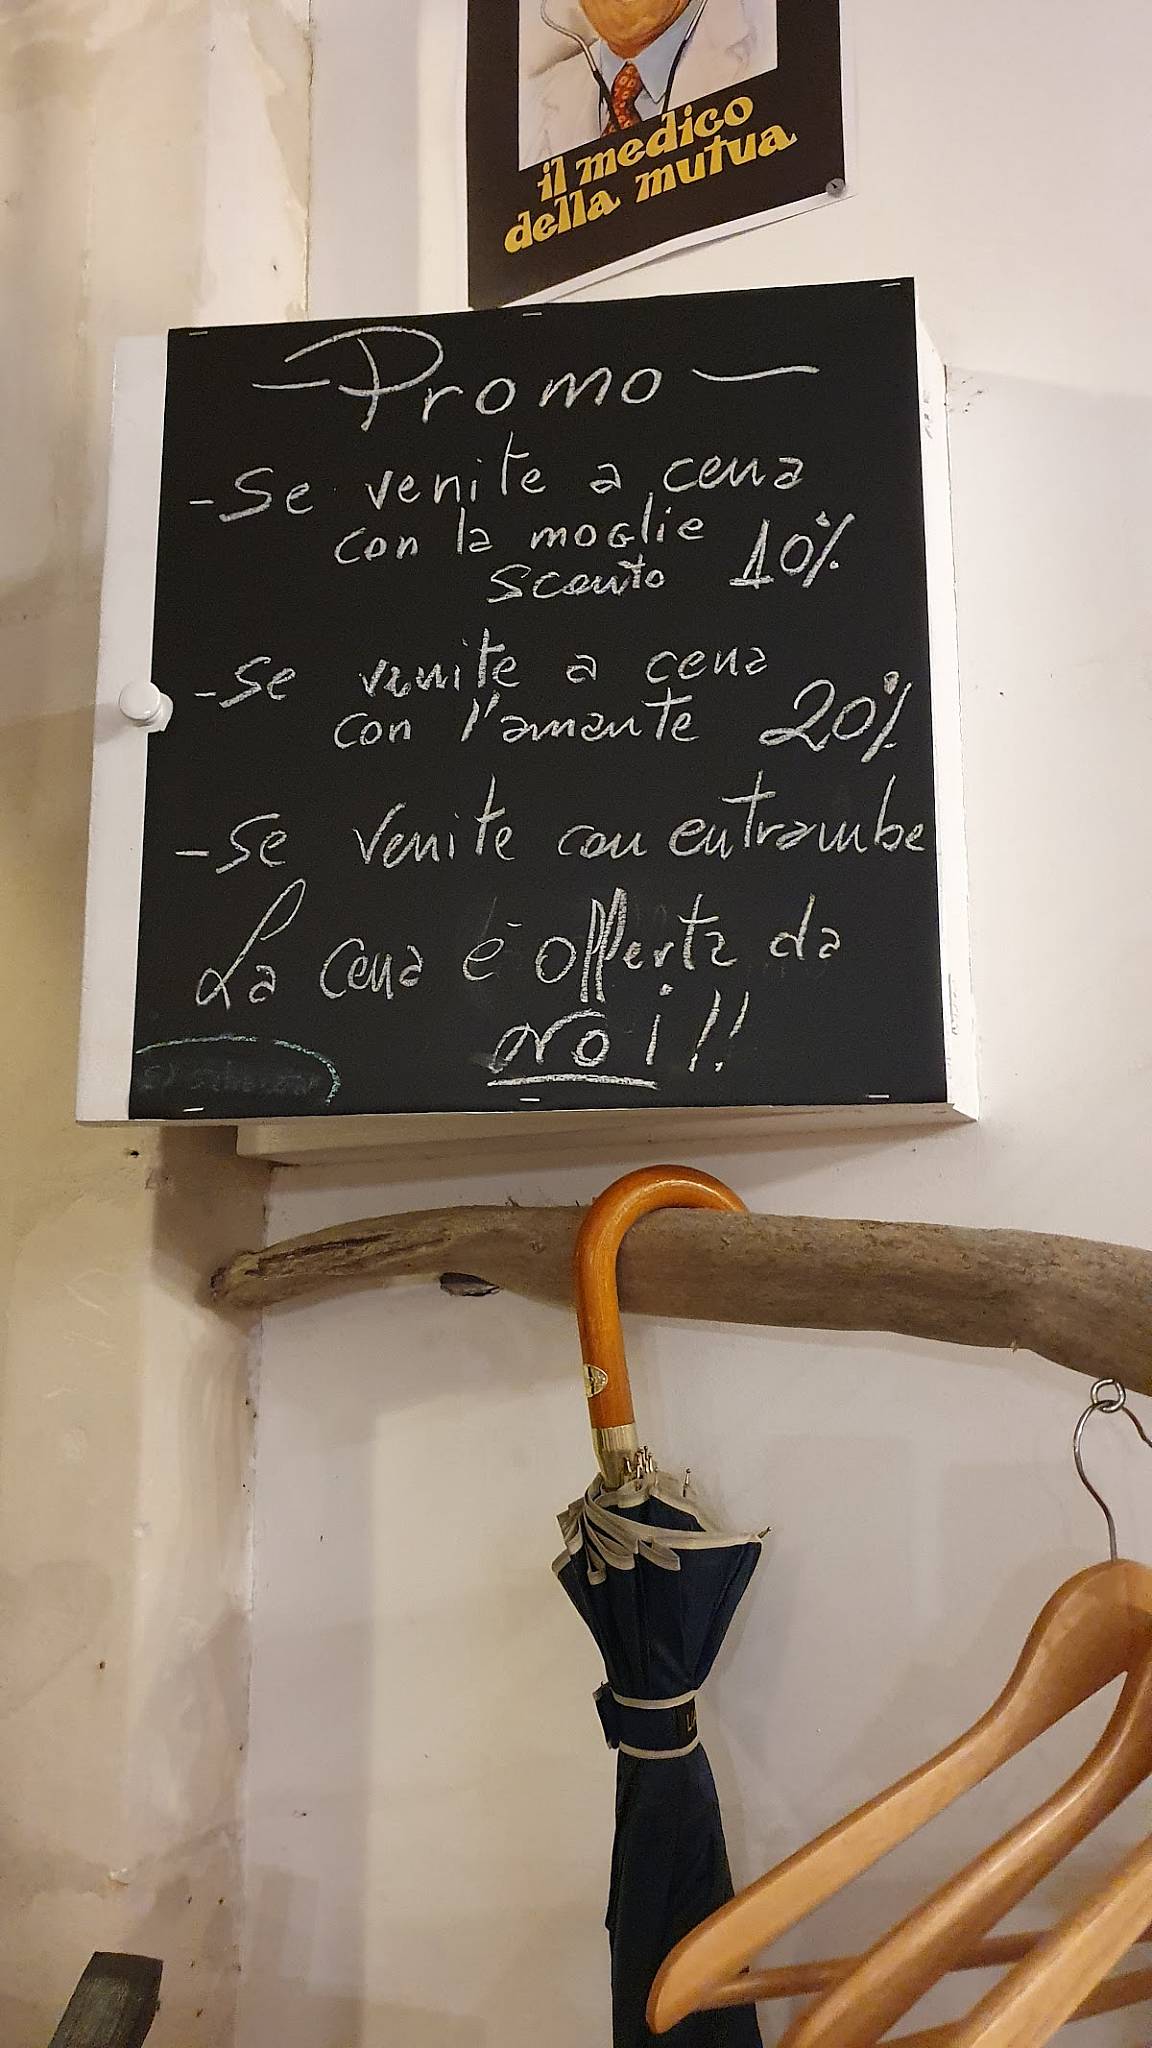 il medico
della mutua
- Promo -
- Se venite a cena
con la moglie
sconto 10%
- Se venite a cena
con l'amante 20%
- Se venite con entrambe
La cena è offerta da
NOi!!